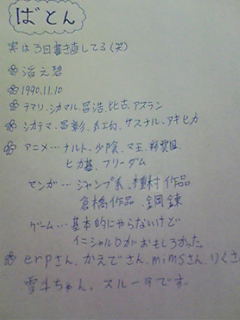 ばとん
実は3日書き直してる(笑)
1990.11.10
テマリ、シカマル、昌浩、比古、アスラン
シカテマ、昌彰、カガ、サスナル、アキヒカ
アニメ…ナルト、少陰、マ王、
ヒカ碁、フリーダム
マンガ…ジャンプ系、種村作品
倉橋作品、鋼錬
ゲーム…基本的にやらないけど
イニシャルDがおもしろかった
erpさん、かえでさん、mimsさん、りくさん
雪斗ちゃん、スルーダです。